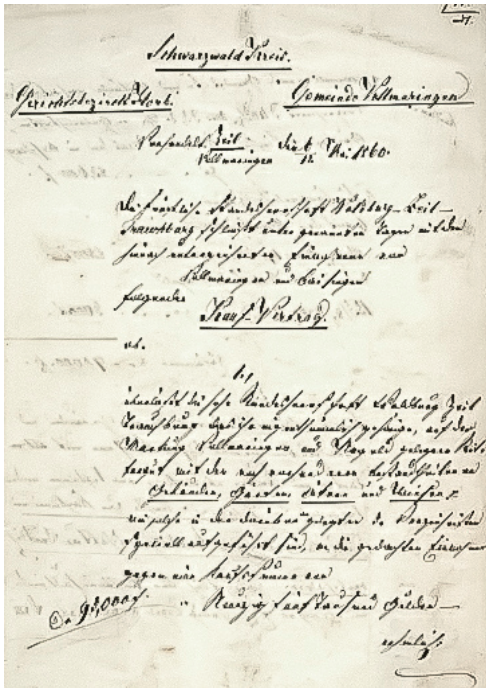 Schwarzwald Kreis.
Gerichtsbezirk Horb. Gemeinde Vollmaringen
Verhandelt Zeil den 6 Mai 1860.
Vollmaringen 12
Die Fürstliche Standesherrschaft Waldburg-Zeil-
Trauchburg schließt unter genannten Tagen mit den
hienach unterzeichneten Einwohnern von
Vollmaringen und
folgenden
Kauf-Vertrag.
ab.
1.,
überläßt die hohe Standesherrschaft Waldburg Zeil
Trauchburg das ihr eigenthümlich gehörige, auf der
Markung Vollmaringen und Nagold gelegene
mit den nach
Gebäuden, Gärten, Äckern und Wiesen,
wie solche in dem
speciell aufgeführt sind, an die gedachten Einwohner
gegen eine Kaufsumme von
95,000 f. Neunzig fünf Tausend Gulden
nehmlich: